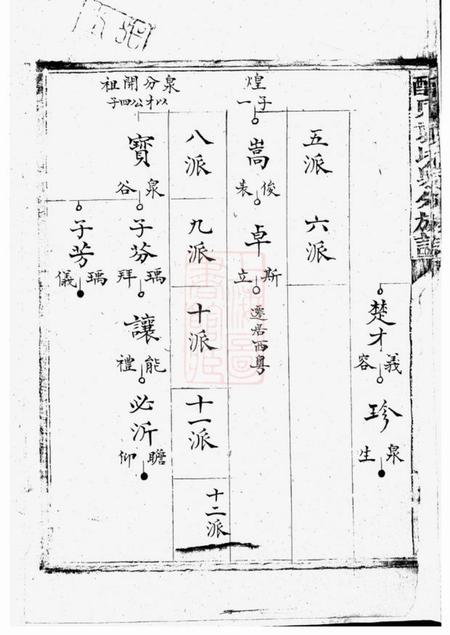 楚才
義容
珍
泉生
五派
六派
煌子一
嵩
俊裘
卓
斯立
遷居西粵
八派
九派
十派
十一派
十二派
泉分開祖
以才公四子
寶
泉谷
子芬
瑀拜
讓
能禮
必沂
瞻仰
子芳
瑀儀